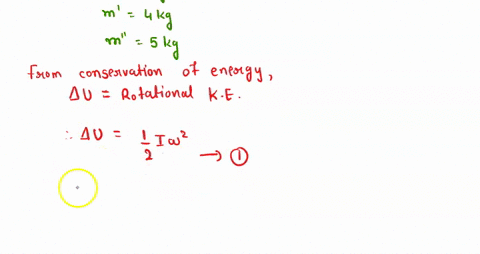 m' = 4 kg
m" = 5 kg
from conservation of energy,
ΔU = Rotational K.E.
∴ ΔU = 1/2 Iω² → ①